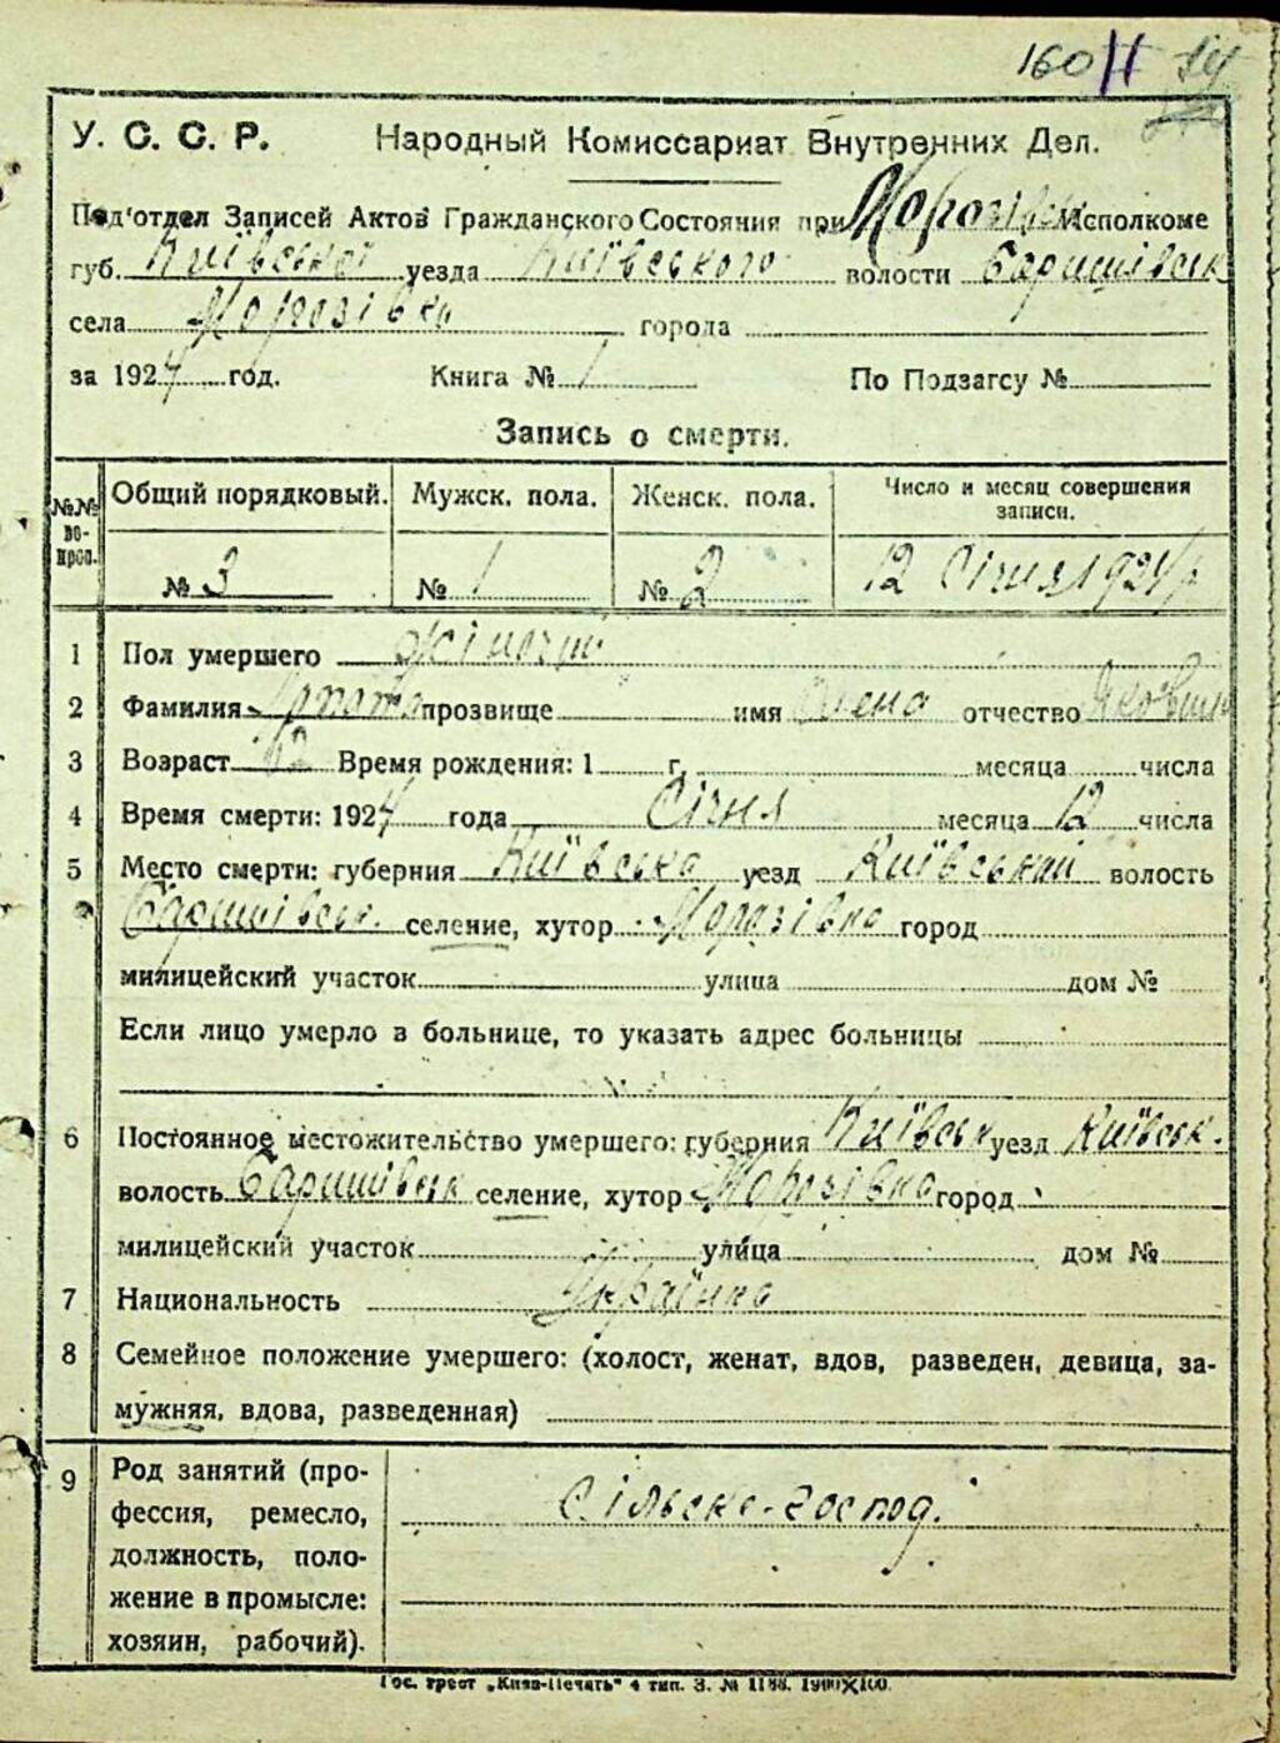 160 II
У. С. С. Р. Народный Комиссариат Внутренних Дел.
Под'отдел Записей Актов Гражданского Состояния при Морозівськ Исполкоме
губ. Київської уезда Київського волости Баришівськ
села Морозівка города
за 1924 год. Книга № 1 По Подзагсу №
Запись о смерти.
№№ во-прос. Общий порядковый. Мужск. пола. Женск. пола. Число и месяц совершения записи.
№ 3 № 1 № 2 12 Січня 1924 р
1 Пол умершего Жіночий
2 Фамилия прозвище имя Олена отчество Яковівна
3 Возраст 62 Время рождения: 1 г. месяца числа
4 Время смерти: 1924 года Січня месяца 12 числа
5 Место смерти: губерния Київська уезд Київський волость
Баришівськ. селение, хутор Морозівка город
милицейский участок улица дом №
Если лицо умерло в больнице, то указать адрес больницы
6 Постоянное местожительство умершего: губерния Київськ уезд Київськ.
волость Баришівськ селение, хутор Морозівка город
милицейский участок улица дом №
7 Национальность Українка
8 Семейное положение умершего: (холост, женат, вдов, разведен, девица, за-
мужняя, вдова, разведенная)
9 Род занятий (про-
фессия, ремесло, Сільсько-господ.
должность, поло-
жение в промысле:
хозяин, рабочий).
Гос. трест „Киев-Печать" 4 тип. З. № 1188. 1900✕100.